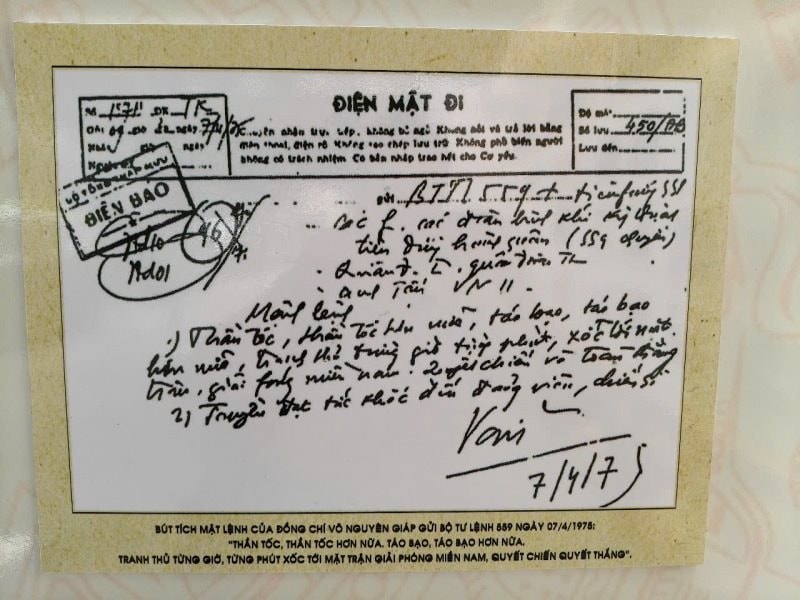 ĐIỆN MẬT ĐI
Số 1571 ĐK TK
ngày 7/4/75
chuyển nhận trực tiếp, không bỏ ngỏ Không nói và trả lời bằng
điện thoại, điện rõ Không sao chép lưu trữ Không phổ biến người
không có trách nhiệm Có bản nháp trao hết cho Cơ yếu.
Độ mã
Số lưu 450/ĐB
Lưu đến
BỘ TỔNG THAM MƯU
ĐIỆN BÁO
46
Ad01
GỬI BTTL 559 +
các đơn binh khí kỹ thuật
tiến đúng hành quân (559 chuyển)
Mệnh lệnh
1) Thần tốc, thần tốc hơn nữa, táo bạo, táo bạo
hơn nữa, tranh thủ từng giờ từng phút, xốc tới mặt
trận, giải fóng miền nam. Quyết chiến và toàn thắng
2) Truyền đạt tức khắc đến đảng viên, chiến sĩ
Văn
7/4/75
BÚT TÍCH MẬT LỆNH CỦA ĐỒNG CHÍ VÕ NGUYÊN GIÁP GỬI BỘ TƯ LỆNH 559 NGÀY 07/4/1975:
"THẦN TỐC, THẦN TỐC HƠN NỮA. TÁO BẠO, TÁO BẠO HƠN NỮA.
TRANH THỦ TỪNG GIỜ, TỪNG PHÚT XỐC TỚI MẶT TRẬN GIẢI PHÓNG MIỀN NAM, QUYẾT CHIẾN QUYẾT THẮNG".